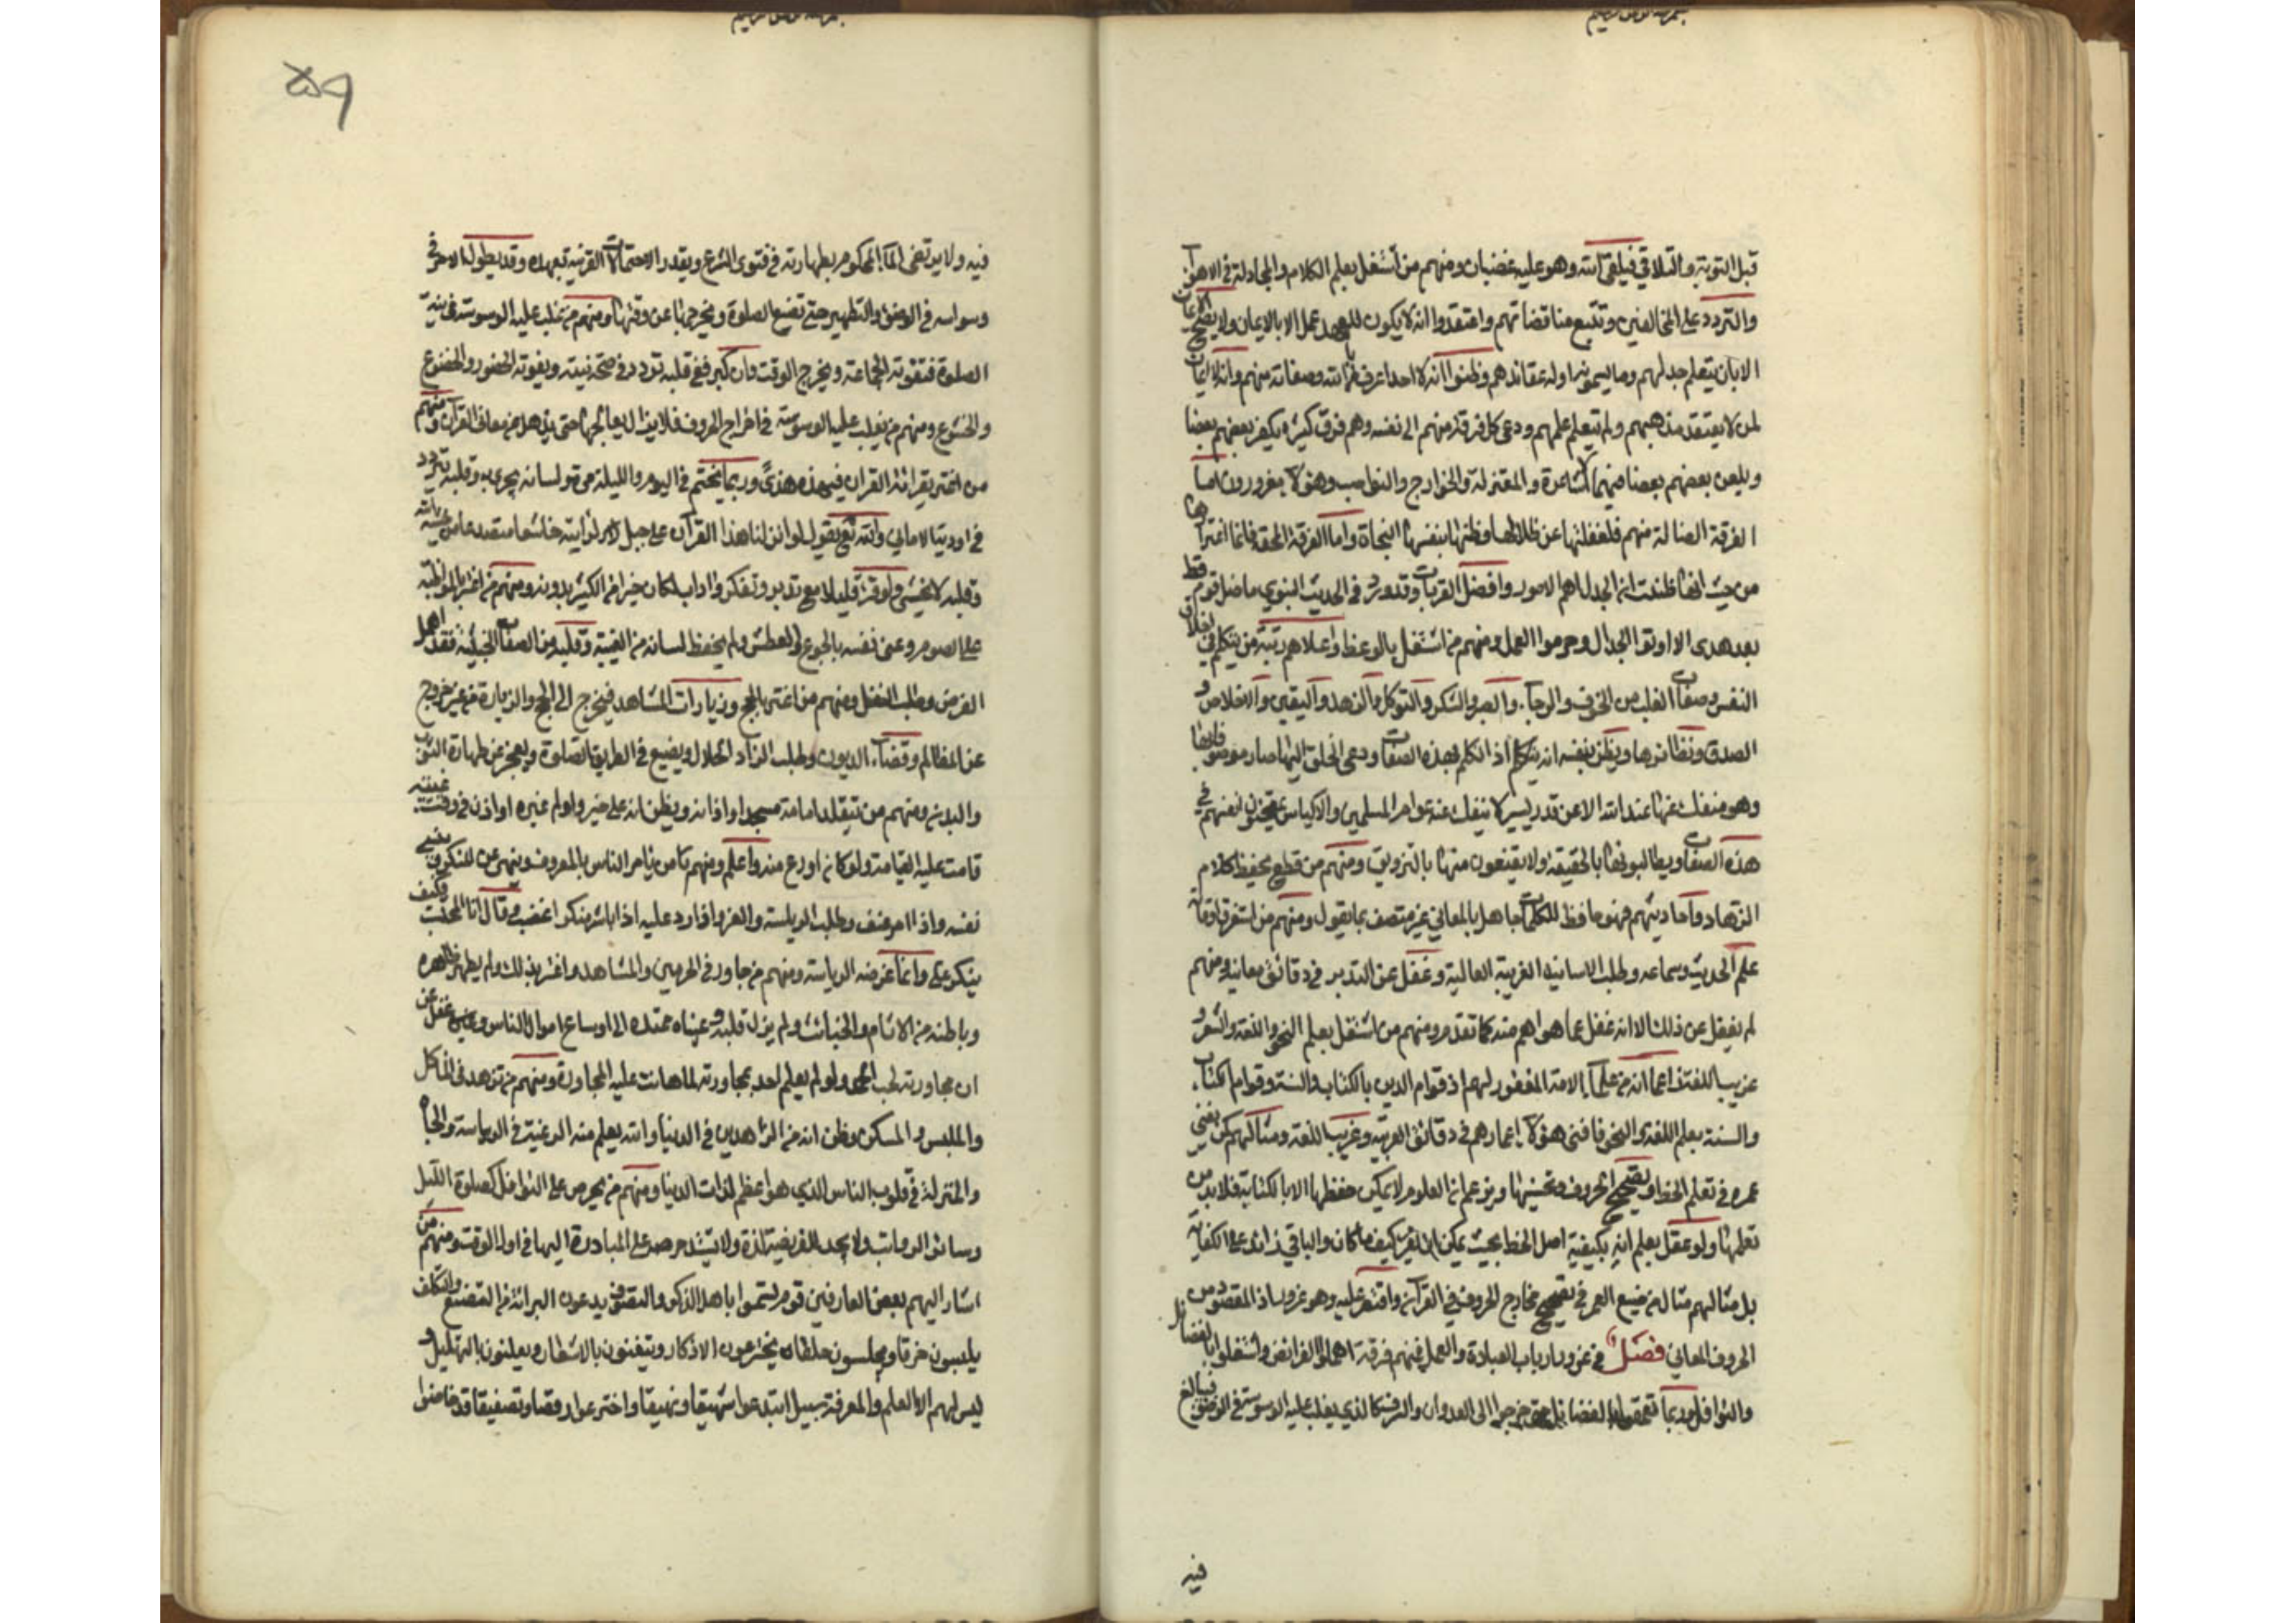 قبل التوبة والتلاقي فيلقى الله وهو عليه غضبان ومنهم من اشتغل بعلم الكلام والمجادلة في الاهواء
والتردد على المخالفين وتتبع مناقضاتهم واعتقدوا انه لا يكون للعبد عمل الا بالايمان ولا يصح الايمان
الا بان يتعلم جدلهم وما يسمونه ادلة عقائدهم وظنوا انه لا احد اعرف بالله وصفاته منهم وانه لا ايمان
لمن لا يعتقد مذهبهم ولم يتعلم علمهم ودعى كل فرقة منهم الى نفسه وهم فرق كثيرة يكفر بعضهم بعضا
ويلعن بعضهم بعضا منهم الاشاعرة والمعتزلة والخوارج والنواصب وهؤلاء مغرورون اما
الفرقة الضالة منهم فلغفلتها عن ضلالها وظنها بنفسها النجاة واما الفرقة المحقة فانما اغترارها
من حيث انها ظنت ان الجدل اهم الامور وافضل القربات وقد ورد في الحديث النبوي ما ضل قوم قط
بعد هدى الا اوتوا الجدال وحرموا العمل ومنهم من اشتغل بالوعظ واعلاهم رتبة من يتكلم في اخلاق
النفس وصفات القلب من الخوف والرجاء والصبر والشكر والتوكل والزهد واليقين والاخلاص و
الصدق ونظائرها ويظن بنفسه انه يتكلم اذا تكلم بهذه الصفات ودعى الخلق اليها صار موصوفا بها
وهو منفك عنها عند الله الا عن قدر يسير لا ينفك عنه عوام المسلمين والاكياس يمتحنون انفسهم في
هذه الصفات ويطالبونها بالحقيقة ولا يقنعون منها بالتزويق ومنهم من قطع بحفظ كلام
الزهاد واحاديثهم فهو حافظ للكلمات جاهل بالمعاني غير متصف بما يقول ومنهم من استغرق اوقاته
علم الحديث وسماعه وطلب الاسانيد الغريبة العالية وغفل عن التدبر في دقائق معانيه ومنهم
لم يغفل عن ذلك الا انه غفل عما هو اهم منه كما تقدم ومنهم من اشتغل بعلم النحو واللغة والشعر و
غريب اللغة زاعما انه من علماء الامة المغفور لهم اذ قوام الدين بالكتاب والسنة وقوام الكتاب
والسنة بعلم اللغة والنحو فافنى هؤلاء اعمارهم في دقائق العربية وغريب اللغة ومثالهم كمن يفنى
عمره في تعلم الخط وتصحيح الحروف وتحسينها ويزعم ان العلوم لا يمكن حفظها الا بالكتابة فلا بد من
تعلمها ولو عقل يعلم انه بكيفية اصل الخط بحيث يمكن ان يقرء كيف ما كان والباقي زائد على الكفاية
بل مثالهم مثال من ضيع العمر في تصحيح مخارج الحروف في القرآن واقتصر عليه وهو غرور اذ المقصود من
الحروف المعاني فصل في غرور ارباب العبادة والعمل فمنهم فرقة اهملوا الفرائض واشتغلوا بالفضائل
والنوافل وربما تعمقوا في الفضائل حتى خرجوا الى العدوان والسرف كالذي يغلب عليه الوسوسة في الوضوء فيبالغ
فيه
٥٩
فيه ولا يرتضى الماء المحكوم بطهارته في فتوى الشرع ويقدر الاحتمالات القريبة بعيدة وقد يطول الامر في
وسواسه في الوضوء والتطهير حتى تضيع الصلوة ويخرجها عن وقتها ومنهم من غلب عليه الوسوسة في نية
الصلوة فتفوته الجماعة ويخرج الوقت وان كبر ففي قلبه تردد في صحة نيته ويفوته الحضور والخضوع
والخشوع ومنهم من يغلب عليه الوسوسة في اخراج الحروف فلا يزال يعالجها حتى يذهل عن معاني القرآن ومنهم
من اغتر بقرائة القران فيهذه هذا وربما يختم في اليوم والليلة مرة ولسانه يجرى به وقلبه يتردد
في اودية الاماني والله تع يقول لو انزلنا هذا القرآن على جبل لرايته خاشعا متصدعا من خشية الله
وقلبه لا يخشى ولو قرء قليلا مع تدبر وتفكر واداب لكان خيرا من الكثير بدونه ومنهم من اغتر بالمواظبة
على الصوم وعنى نفسه بالجوع والعطش ولم يحفظ لسانه من الغيبة وقلبه من الصفات الخبيثة فقد اهمل
الفرض وطلب النفل ومنهم من اغتر بالحج وزيارات المشاهد فيخرج الى الحج والزيارة من غير خروج
عن المظالم وقضاء الديون وطلب الزاد الحلال ويضيع في الطريق الصلوة ويعجز عن طهارة الثوب
والبدن ومنهم من يتقلد امامة مسجد او اذانه ويظن انه على خير ولو ام غيره او اذن في وقت غيبته
قامت عليه القيامة ولو كان اورع منه واعلم ومنهم من يامر الناس بالمعروف وينهى عن المنكر وينسى
نفسه واذا امر عنف وطلب الرياسة والعز واذا رد عليه اذا باشر منكرا غضب وقال انا المحتسب فكيف
ينكر علي وانما غرضه الرياسة ومنهم من جاور في الحرمين والمشاهد واغتر بذلك ولم يطهر ظاهره
وباطنه من الاثام والخبائث ولم يزل قلبه وعيناه ممتدة الى اوساخ اموال الناس وغفل عن
ان مجاورته لحب الحمد ولو لم يعلم احد بمجاورته لما هانت عليه المجاورة ومنهم من تزهد في الماكل
والملبس والمسكن وظن انه من الزاهدين في الدنيا والله يعلم منه الرغبة في الرياسة والجاه
والمنزلة في قلوب الناس الذي هو اعظم لذات الدنيا ومنهم من يحرص على النوافل كصلوة الليل
وسائر الرواتب ولا يجد للفريضة لذة ولا يشتد حرصه على المبادرة اليها في اول الوقت ومنهم من
اشار اليهم بعض العارفين قوم تسموا باهل الذكر والتصوف يدعون البرائة من التصنع والتكلف
يلبسون خرقا ويجلسون حلقا يخترعون الاذكار ويتغنون بالاشعار ويعلنون بالتهليل و
ليس لهم الى العلم والمعرفة سبيل ابتدعوا شهيقا ونهيقا واخترعوا رقصا وتصفيقا قد خاضوا